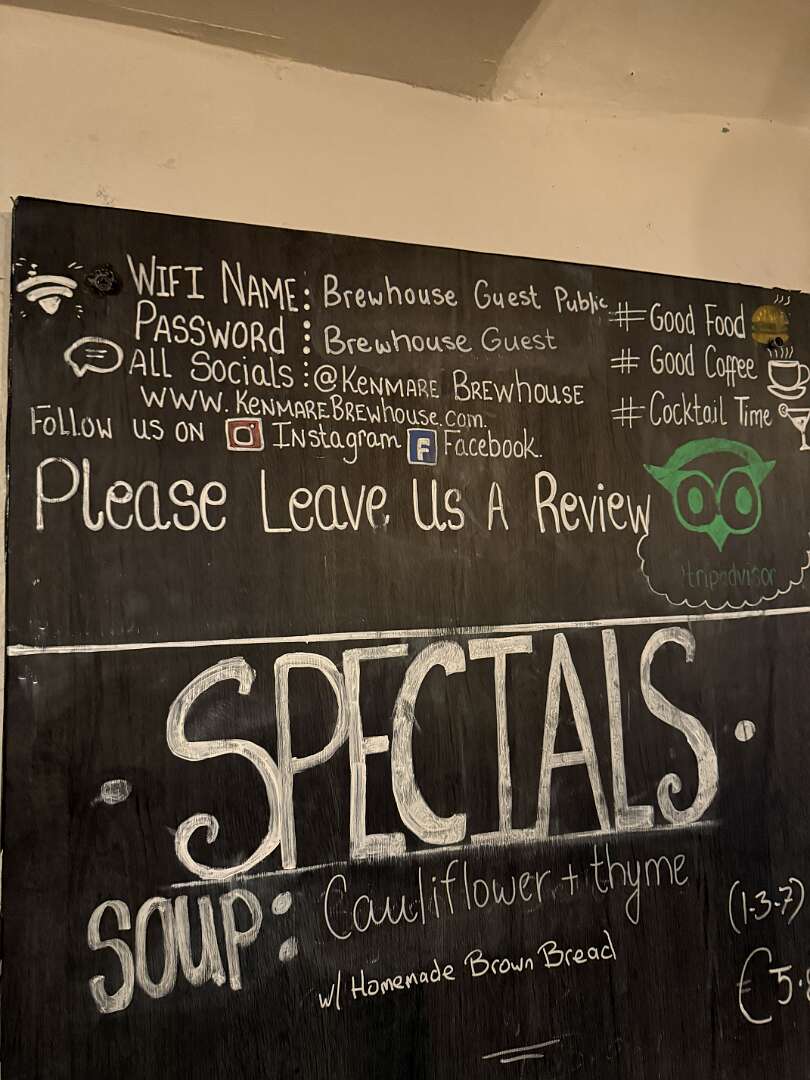 WIFI NAME: Brewhouse Guest Public
PASSWORD: Brewhouse Guest
ALL SOCIALS: @KENMARE BREWHOUSE
WWW.KENMAREBREWHOUSE.COM.
FOLLOW US ON INSTAGRAM F Facebook.
# Good Food
# Good Coffee
# Cocktail Time
Please Leave Us A Review
tripadvisor
SPECIALS
SOUP: Cauliflower + thyme
w/ Homemade Brown Bread
(1-3-7)
€5.